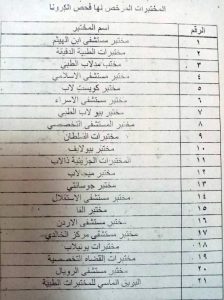 المختبرات المرخص لها فحص الكرونا
الرقم اسم المختبر
١ مختبر مستشفى ابن الهيثم
٢ مختبرات الطبية الدقيقة
٣ مختبر مدلاب الطبي
٤ مختبر مستشفى الاسلامي
٥ مختبر كويست لاب
٦ مختبر مستشفى الاسراء
٧ مختبر بيو لاب الطبي
٨ مختبر المستشفى التخصصي
٩ مختبرات السلطان
١٠ مختبر بيولايف
١١ المختبرات الجزيئية ذالاب
١٢ مختبر ميدلاب
١٣ مختبر جوسانتي
١٤ مختبر مستشفى الاستقلال
١٥ مختبر الفا
١٦ مختبر مستشفى الاردن
١٧ مختبر مستشفى مركز الخالدي
١٨ مختبرات يونيلاب
١٩ مختبرات القضاه التخصصية
٢٠ مختبر مستشفى الرويال
٢١ البريق الماسي للمختبرات الطبية